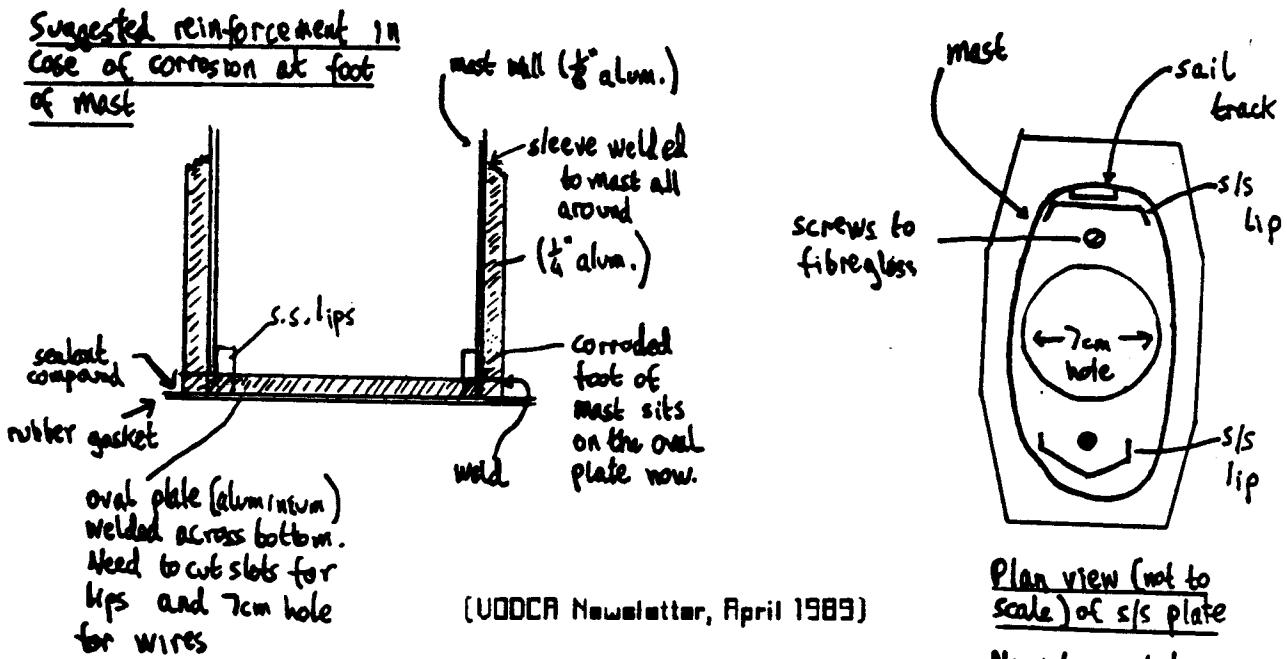 Suggested reinforcement in
case of corrosion at foot
of mast
mast wall (1/8" alum.)
sleeve welded
to mast all
around
(1/4" alum.)
s.s. lips
sealant
compound
rubber gasket
corroded
foot of
mast sits
on the oval
plate now.
weld
oval plate (aluminium)
welded across bottom.
Need to cut slots for
lips and 7cm hole
for wires
(VODCA Newsletter, April 1989)
mast
sail
track
s/s
lip
screws to
fibregloss
7cm
hole
s/s
lip
Plan view (not to
scale) of s/s plate